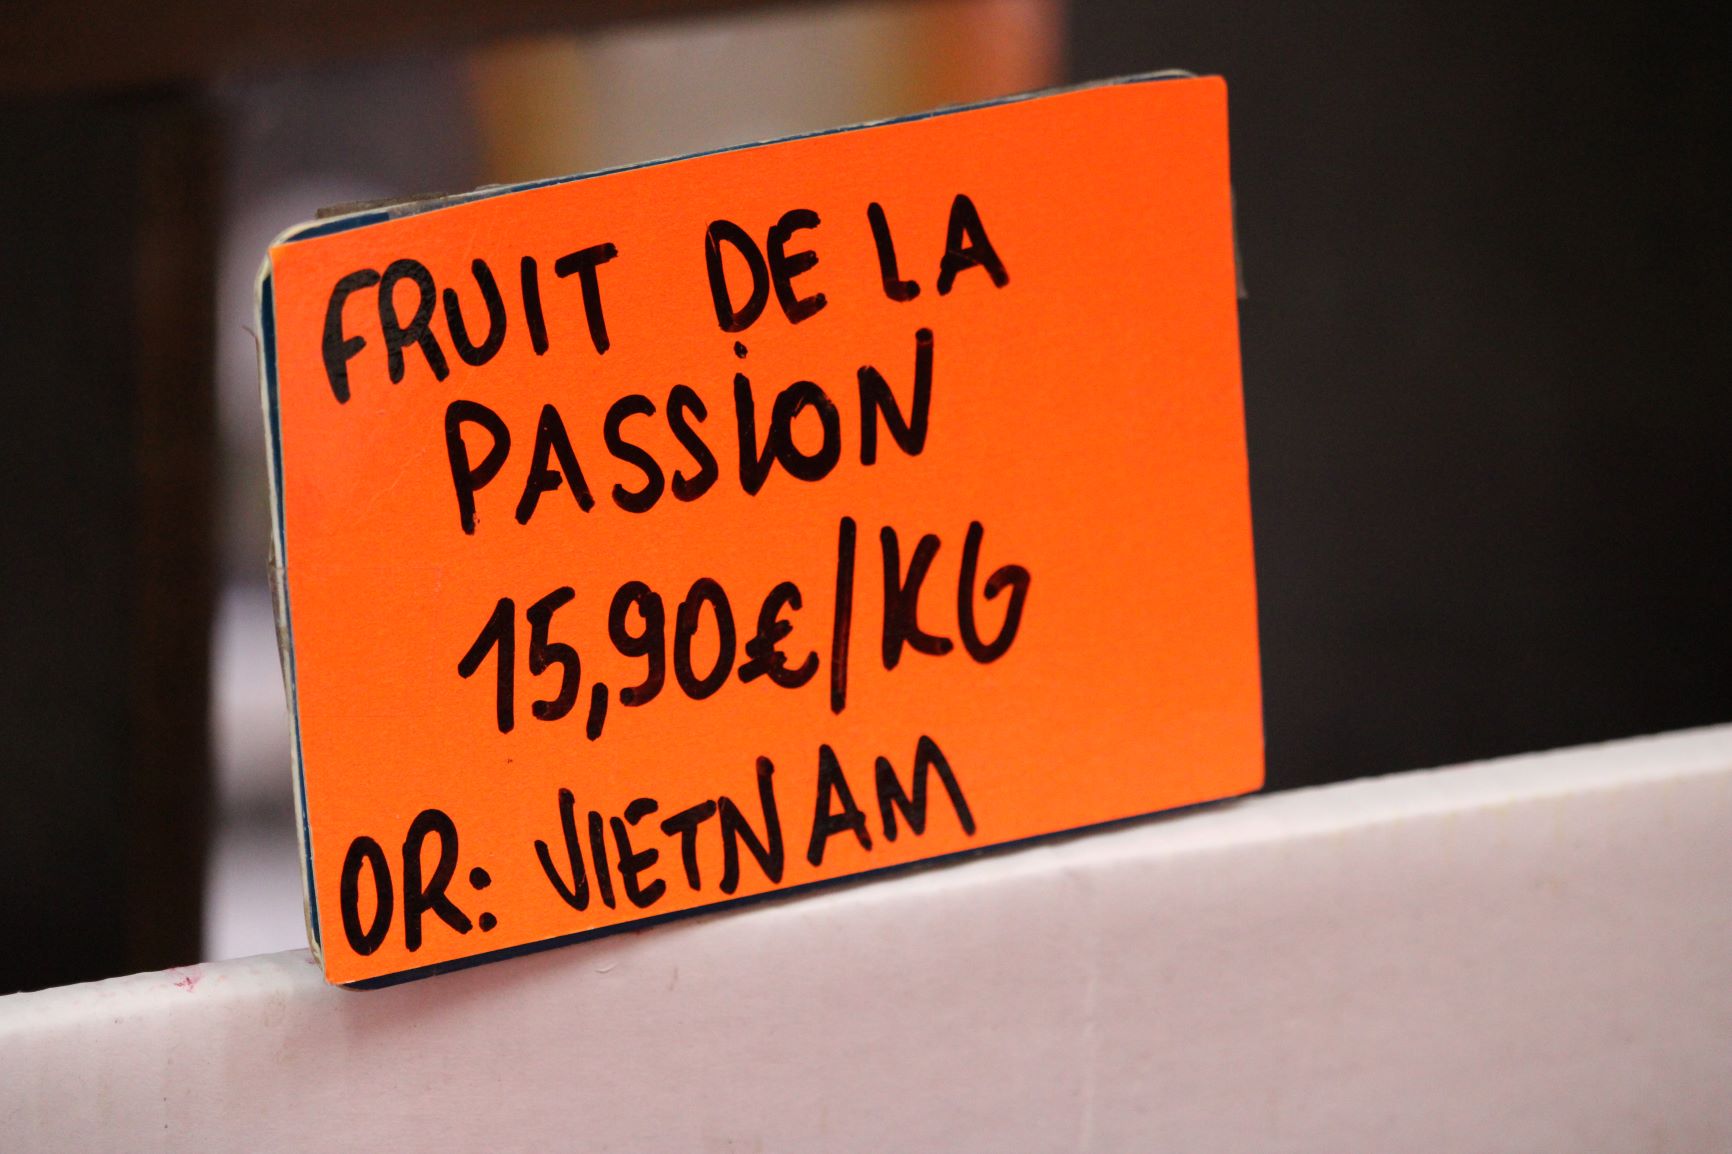 FRUIT DE LA
PASSION
15,90€/KG
OR: VIETNAM